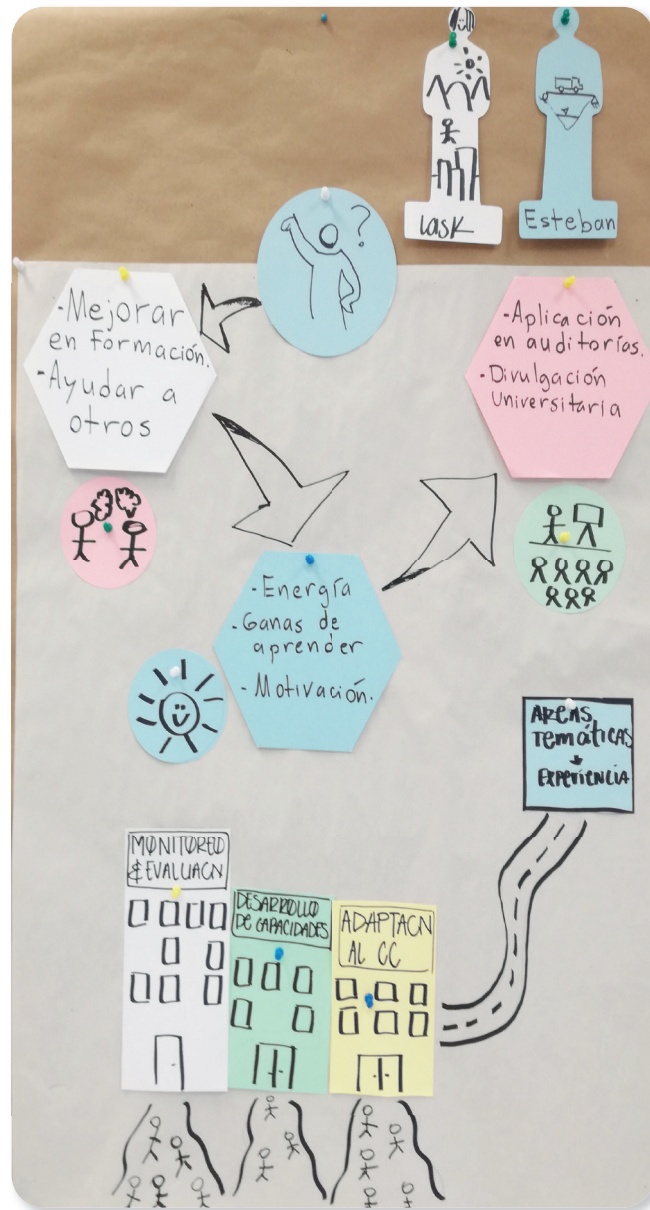 Lask
Esteban
?
-Mejorar
en Formación.
-Ayudar a
otros
-Aplicación
en auditorías.
-Divulgación
Universitaria
-Energía
-Ganas de
aprender
-Motivación.
AREAS
TEMáTICAS
+
EXPERIENCIA
MONITOREO
& EVALUACN
DESARROLLO
DE CAPACIDADES
ADAPTACN
AL CC